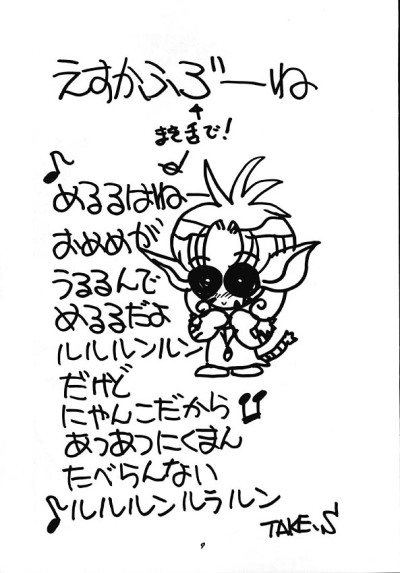 えすかふろ゛ーね
↑
まき舌で！
♪
めるるはねー
おめめが
うるるんで
めるるだよ
ルルルンルン
だけど
にゃんこだから
あつあつにくまん
たべらんない
♪ルルルンルラルン
TAKE.S
9